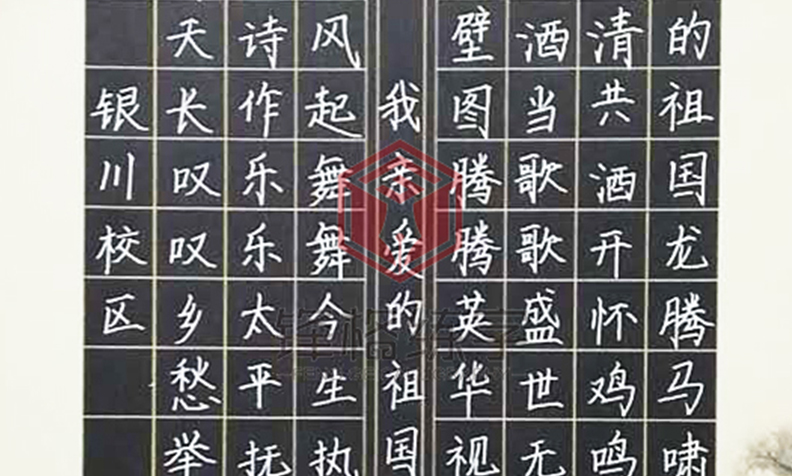 的祖国龙腾马啸
清共洒开怀鸡鸣
酒当歌歌盛世无
壁图腾腾英华视
我亲爱的祖国
风起舞舞今生执
诗作乐乐太平抚
天长叹叹乡愁举
银川校区